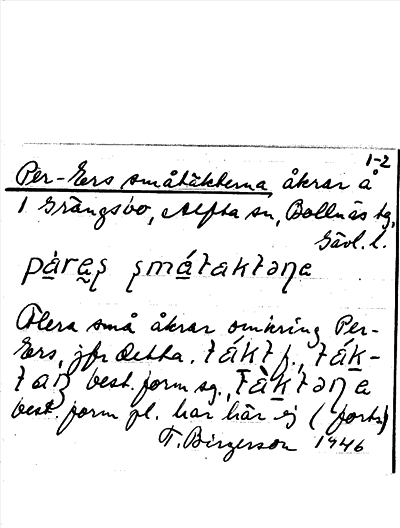 1-2
Per-Ers småtäkterna, åkrar å
1 Grängsbo, Alfta sn, Bollnäs tg,
Gävl. l.
pàraş şmátaktəηe
Flera små åkrar omkring Per-
Ers, jfr detta. tákt f., ták-
tan best. form sg., tàktəηe
best. form pl. har här ej (forts)
T. Birgerson 1946